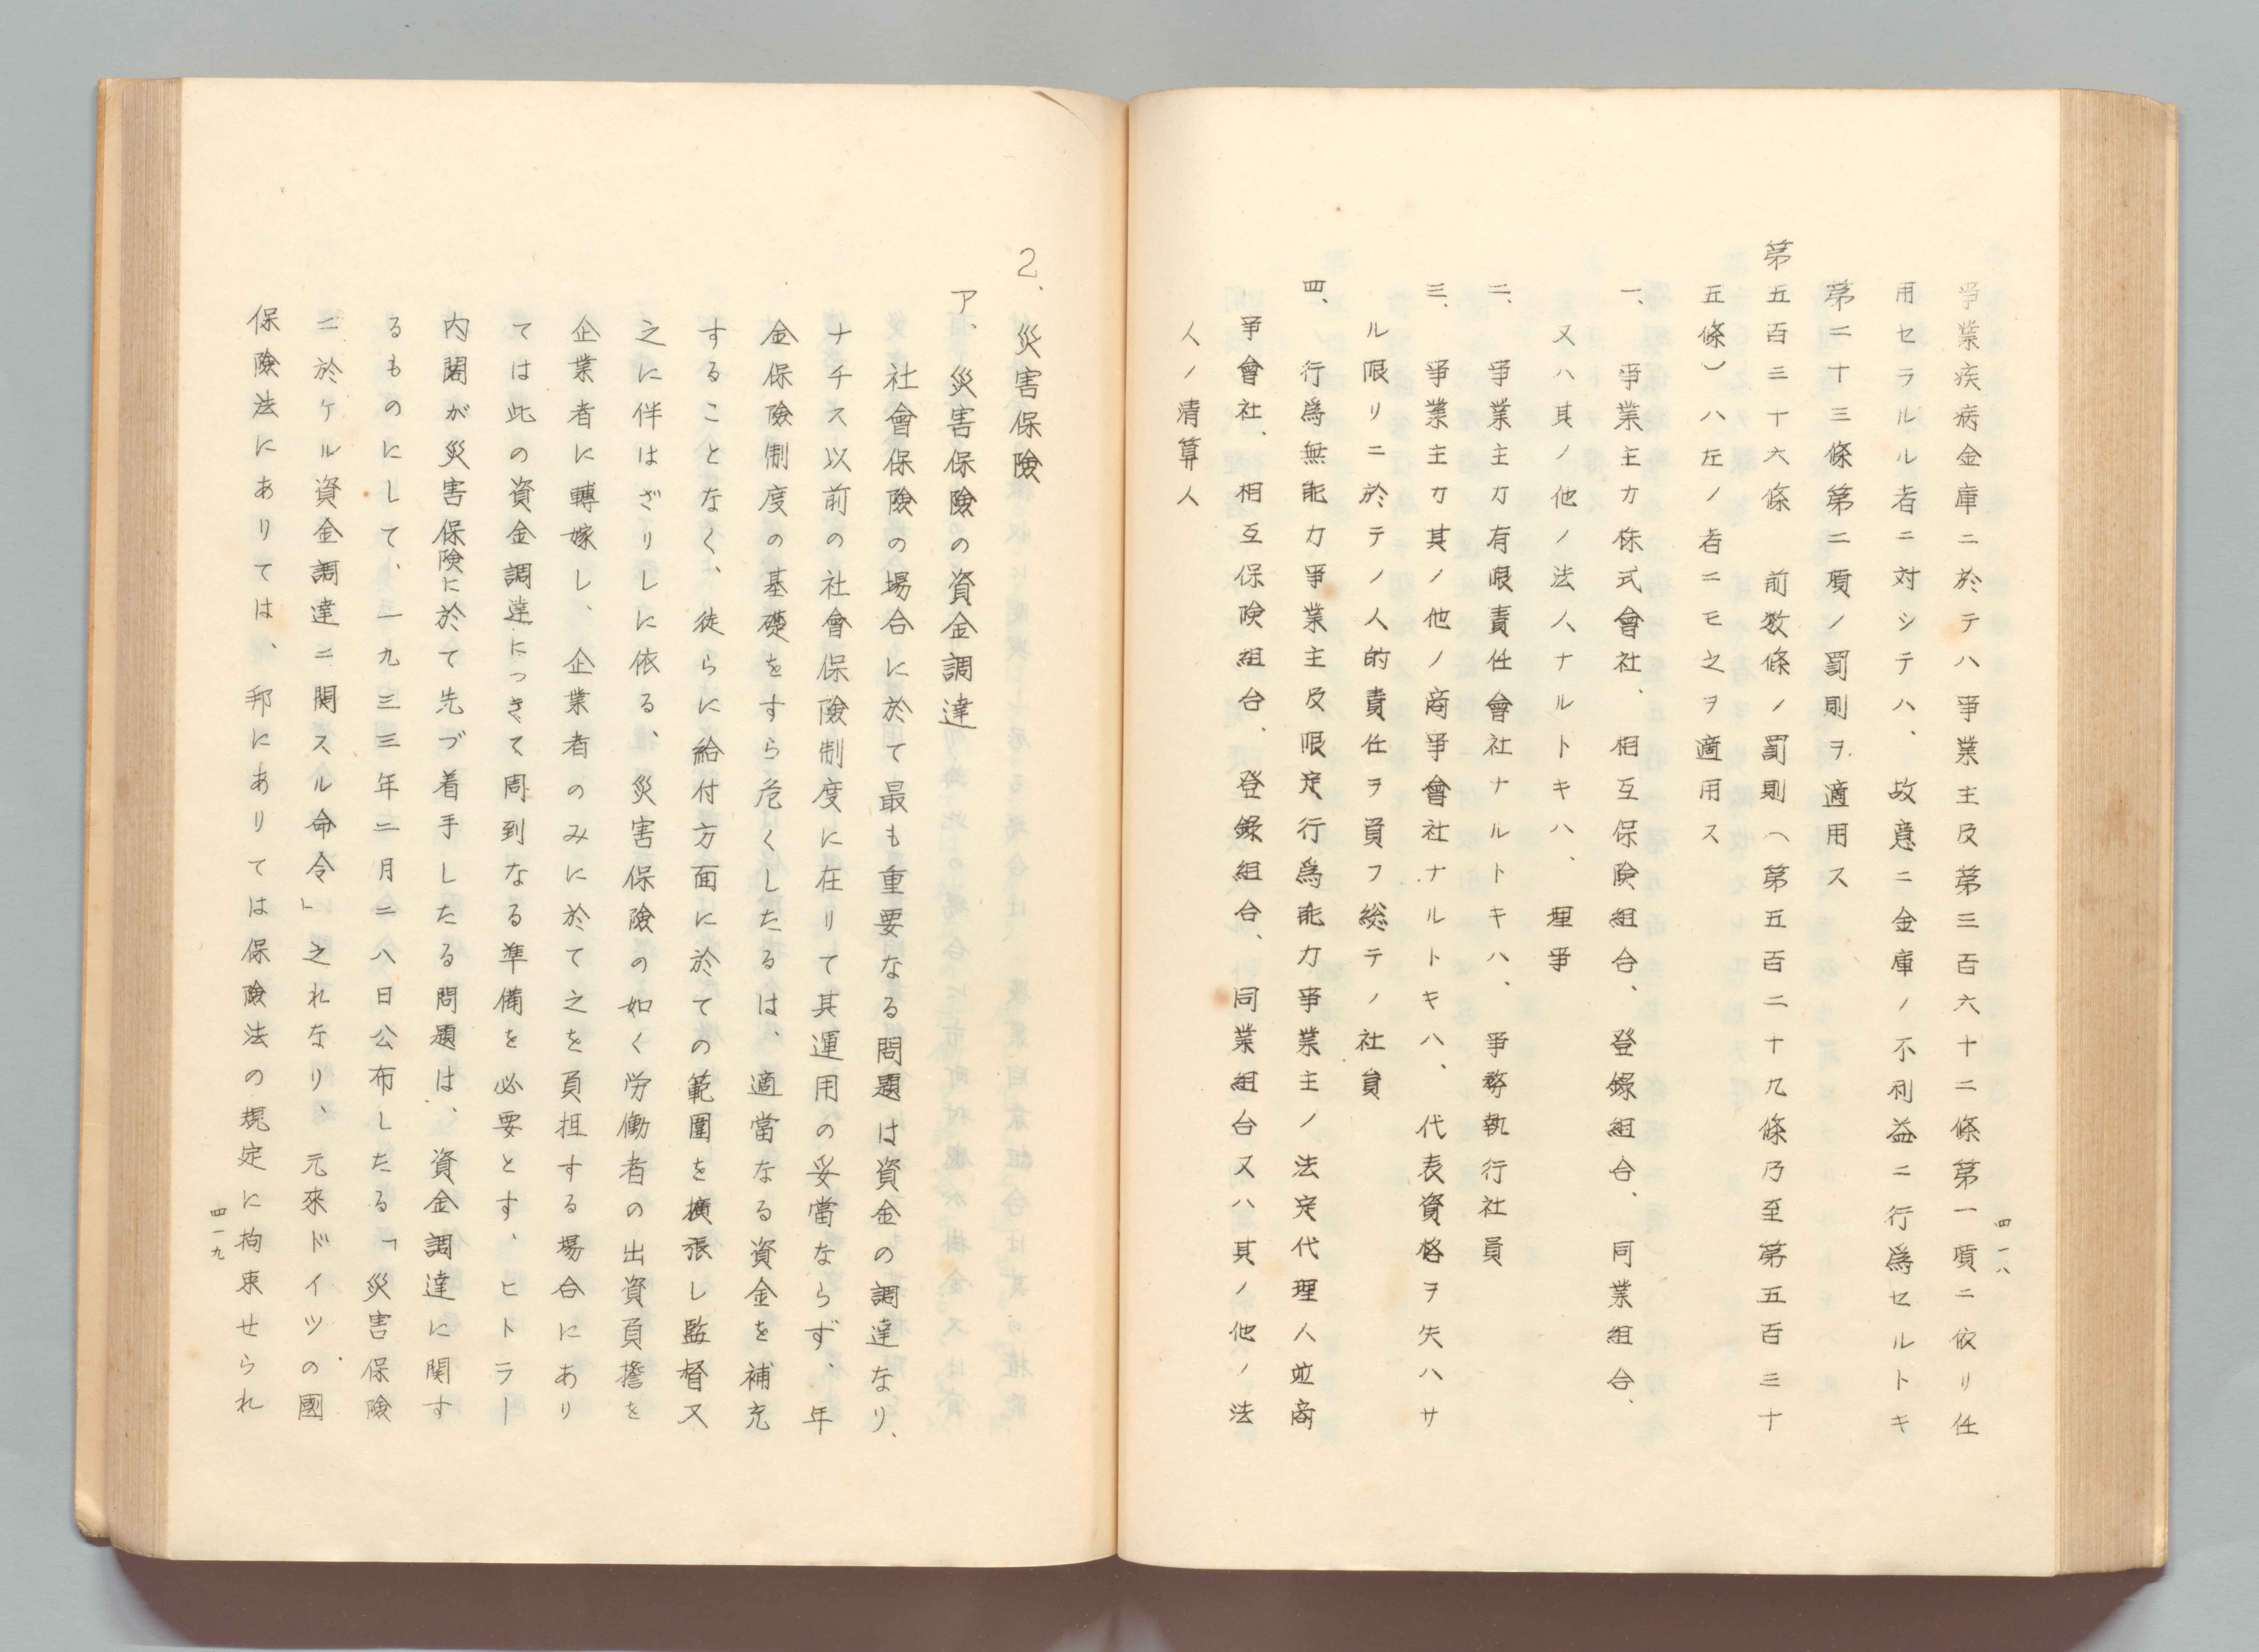 事業疾病金庫ニ於テハ事業主及第三百六十二條第一項ニ依リ任
用セラルル者ニ対シテハ、故意ニ金庫ノ不利益ニ行爲セルトキ
第二十三條第二項ノ罰則ヲ適用ス
第五百三十六條 前数條ノ罰則(第五百二十九條乃至第五百三十
五條)ハ左ノ者ニモ之ヲ適用ス
一、事業主カ株式會社、相互保険組合、登錄組合、同業組合、
又ハ其ノ他ノ法人ナルトキハ、理事
二、事業主カ有限責任會社ナルトキハ、事務執行社員
三、事業主カ其ノ他ノ商事會社ナルトキハ、代表資格ヲ失ハサ
ル限リニ於テノ人的責任ヲ負フ総テノ社員
四、行爲無能力事業主及限定行爲能力事業主ノ法定代理人並商
事會社、相互保険組合、登錄組合、同業組合又ハ其ノ他ノ法
人ノ清算人
四一八
2、災害保險
ア、災害保險の資金調達
社會保險の場合に於て最も重要なる問題は資金の調達なり、
ナチス以前の社會保險制度に在りて其運用の妥當ならず、年
金保險制度の基礎をすら危くしたるは、適當なる資金を補充
することなく、徒らに給付方面に於ての範圍を擴張し監督又
之に伴はざりしに依る、災害保險の如く労働者の出資負擔を
企業者に轉嫁し、企業者のみに於て之を負担する場合にあり
ては此の資金調達につきて周到なる準備を必要とす、ヒトラー
内閣が災害保険に於て先づ着手したる問題は、資金調達に関す
るものにして、一九三三年二月二八日公布したる「災害保險
ニ於ケル資金調達ニ関スル命令」之れなり、元來ドイツの國
保險法にありては、邦にありては保險法の規定に拘束せられ
四一九